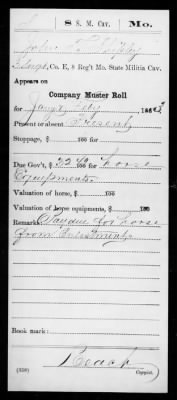 S 8 S. M. Cav. Mo.
John
Co. E, 8 Reg't Mo. State Militia Cav.
Appears on
Company Muster Roll
for Jan & Feby, 1862
Present or absent Present
Stoppage, $ 100 for
Due Gov't, $ 100 for horse
Equipments.
Valuation of horse, $ 100
Valuation of horse equipments, $ 100
Remarks: for horse
from
Book mark:
Roach
(358) Copyist.